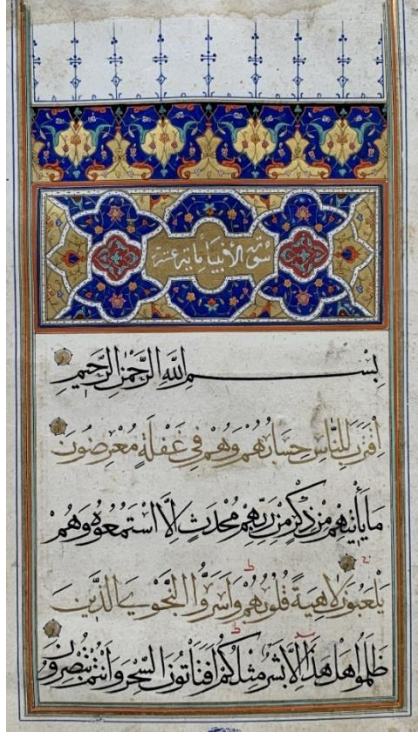 سورة الأنبيا ماية عشر
بِسْمِ اللَّهِ الرَّحْمَٰنِ الرَّحِيمِ
اِقْتَرَبَ لِلنَّاسِ حِسَابُهُمْ وَهُمْ فِي غَفْلَةٍ مُعْرِضُونَ
مَا يَأْتِيهِمْ مِنْ ذِكْرٍ مِنْ رَبِّهِمْ مُحْدَثٍ إِلَّا اسْتَمَعُوهُ وَهُمْ
يَلْعَبُونَ لَاهِيَةً قُلُوبُهُمْ وَأَسَرُّوا النَّجْوَى الَّذِينَ
ظَلَمُوا هَلْ هَذَا إِلَّا بَشَرٌ مِثْلُكُمْ أَفَتَأْتُونَ السِّحْرَ وَأَنْتُمْ تُبْصِرُونَ